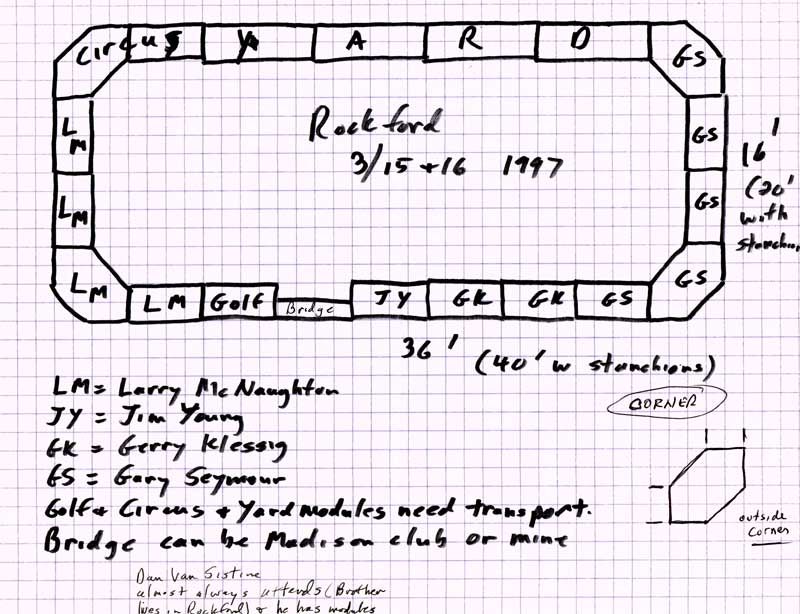 Circus Y A R D GS
LM
Rockford
3/15 + 16 1997
GS
16'
(20'
with
LM
GS
LM
LM Golf Bridge JY GK GK GS
GS
36' (40' w stanchions)
LM = Larry McNaughton
CORNER
JY = Jim Young
GK = Gerry Klessig
GS = Gary Seymour
Golf + Circus + Yard modules need transport.
outside
corner
Bridge can be Madison club or mine
Dan Van Sistine
almost always attends (Brother
lives in Rockford) + he has modules